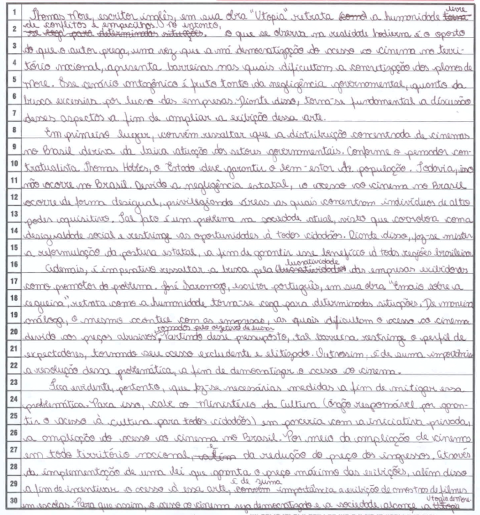 1 Thomas More, escritor inglês, em sua obra "Utopia" retrata como a humanidade livre
2 de conflitos e empecilhos. No entanto, o que se observa na realidade hodierna é o oposto
3 do que o autor prega, uma vez que a má democratização do acesso ao cinema no terri-
4 tório nacional, apresenta barreiras nas quais dificultam a concretização dos planos de
5 More. Esse cenário antagônico é fruto tanto da negligência governamental, quanto da
6 busca excessiva por lucro das empresas. Diante disso, torna-se fundamental a discussão
7 desses aspectos a fim de ampliar a exibição dessa arte.
8 Em primeiro lugar, convém ressaltar que a distribuição concentrada de cinemas
9 no Brasil deriva da baixa atuação dos setores governamentais. Conforme o pensador con-
10 tratualista Thomas Hobbes, o Estado deve garantir o bem-estar da população. Todavia, isso
11 não ocorre no Brasil. Devido a negligência estatal, o acesso ao cinema no Brasil
12 ocorre de forma desigual, privilegiando áreas as quais concentram indivíduos de alto
13 poder aquisitivo. Tal fato é um problema na sociedade atual, visto que corrobora com a
14 desigualdade social e restringe as oportunidades à todos cidadãos. Diante disso, faz-se mister
15 a reformulação da postura estatal, a fim de garantir esse benefício à todas regiões brasileiras
16 Ademais, é imperativo ressaltar a busca pela lucratividade das empresas exibidoras
17 como promotor do problema. José Saramago, escritor português, em sua obra "Ensaio sobre a
18 cegueira", retrata como a humanidade torna-se cega para determinadas situações. De maneira
19 análoga, o mesmo acontece com as empresas, as quais dificultam o acesso ao cinema
20 devido aos preços abusivos, tomados pelo objetivo de lucros. Partindo desse pressuposto, tal barreira restringe o perfil de
21 expectadores, tornando seu acesso excludente e elitizado. Outrossim, é de suma importância
22 a resolução dessa problemática, a fim de democratizar o acesso ao cinema.
23 Fica evidente, portanto, que faz-se necessárias medidas a fim de mitigar essa
24 problemática. Para isso, cabe ao Ministério da Cultura (órgão responsável por garan-
25 tir o acesso à cultura para todos cidadãos) em parceria com a iniciativa privada,
26 a ampliação do acesso ao cinema no Brasil. Por meio da ampliação de cinemas
27 em todo território nacional, e da redução do preço dos ingressos. Através
28 da implementação de uma lei que aponta o preço máximo das exibições, além disso
29 a fim de incentivar o acesso à essa arte, é de suma importância a exibição de amostras de filmes
30 em escolas. Para que assim, o acesso ao cinema seja democratizado e a sociedade alcance a Utopia de More